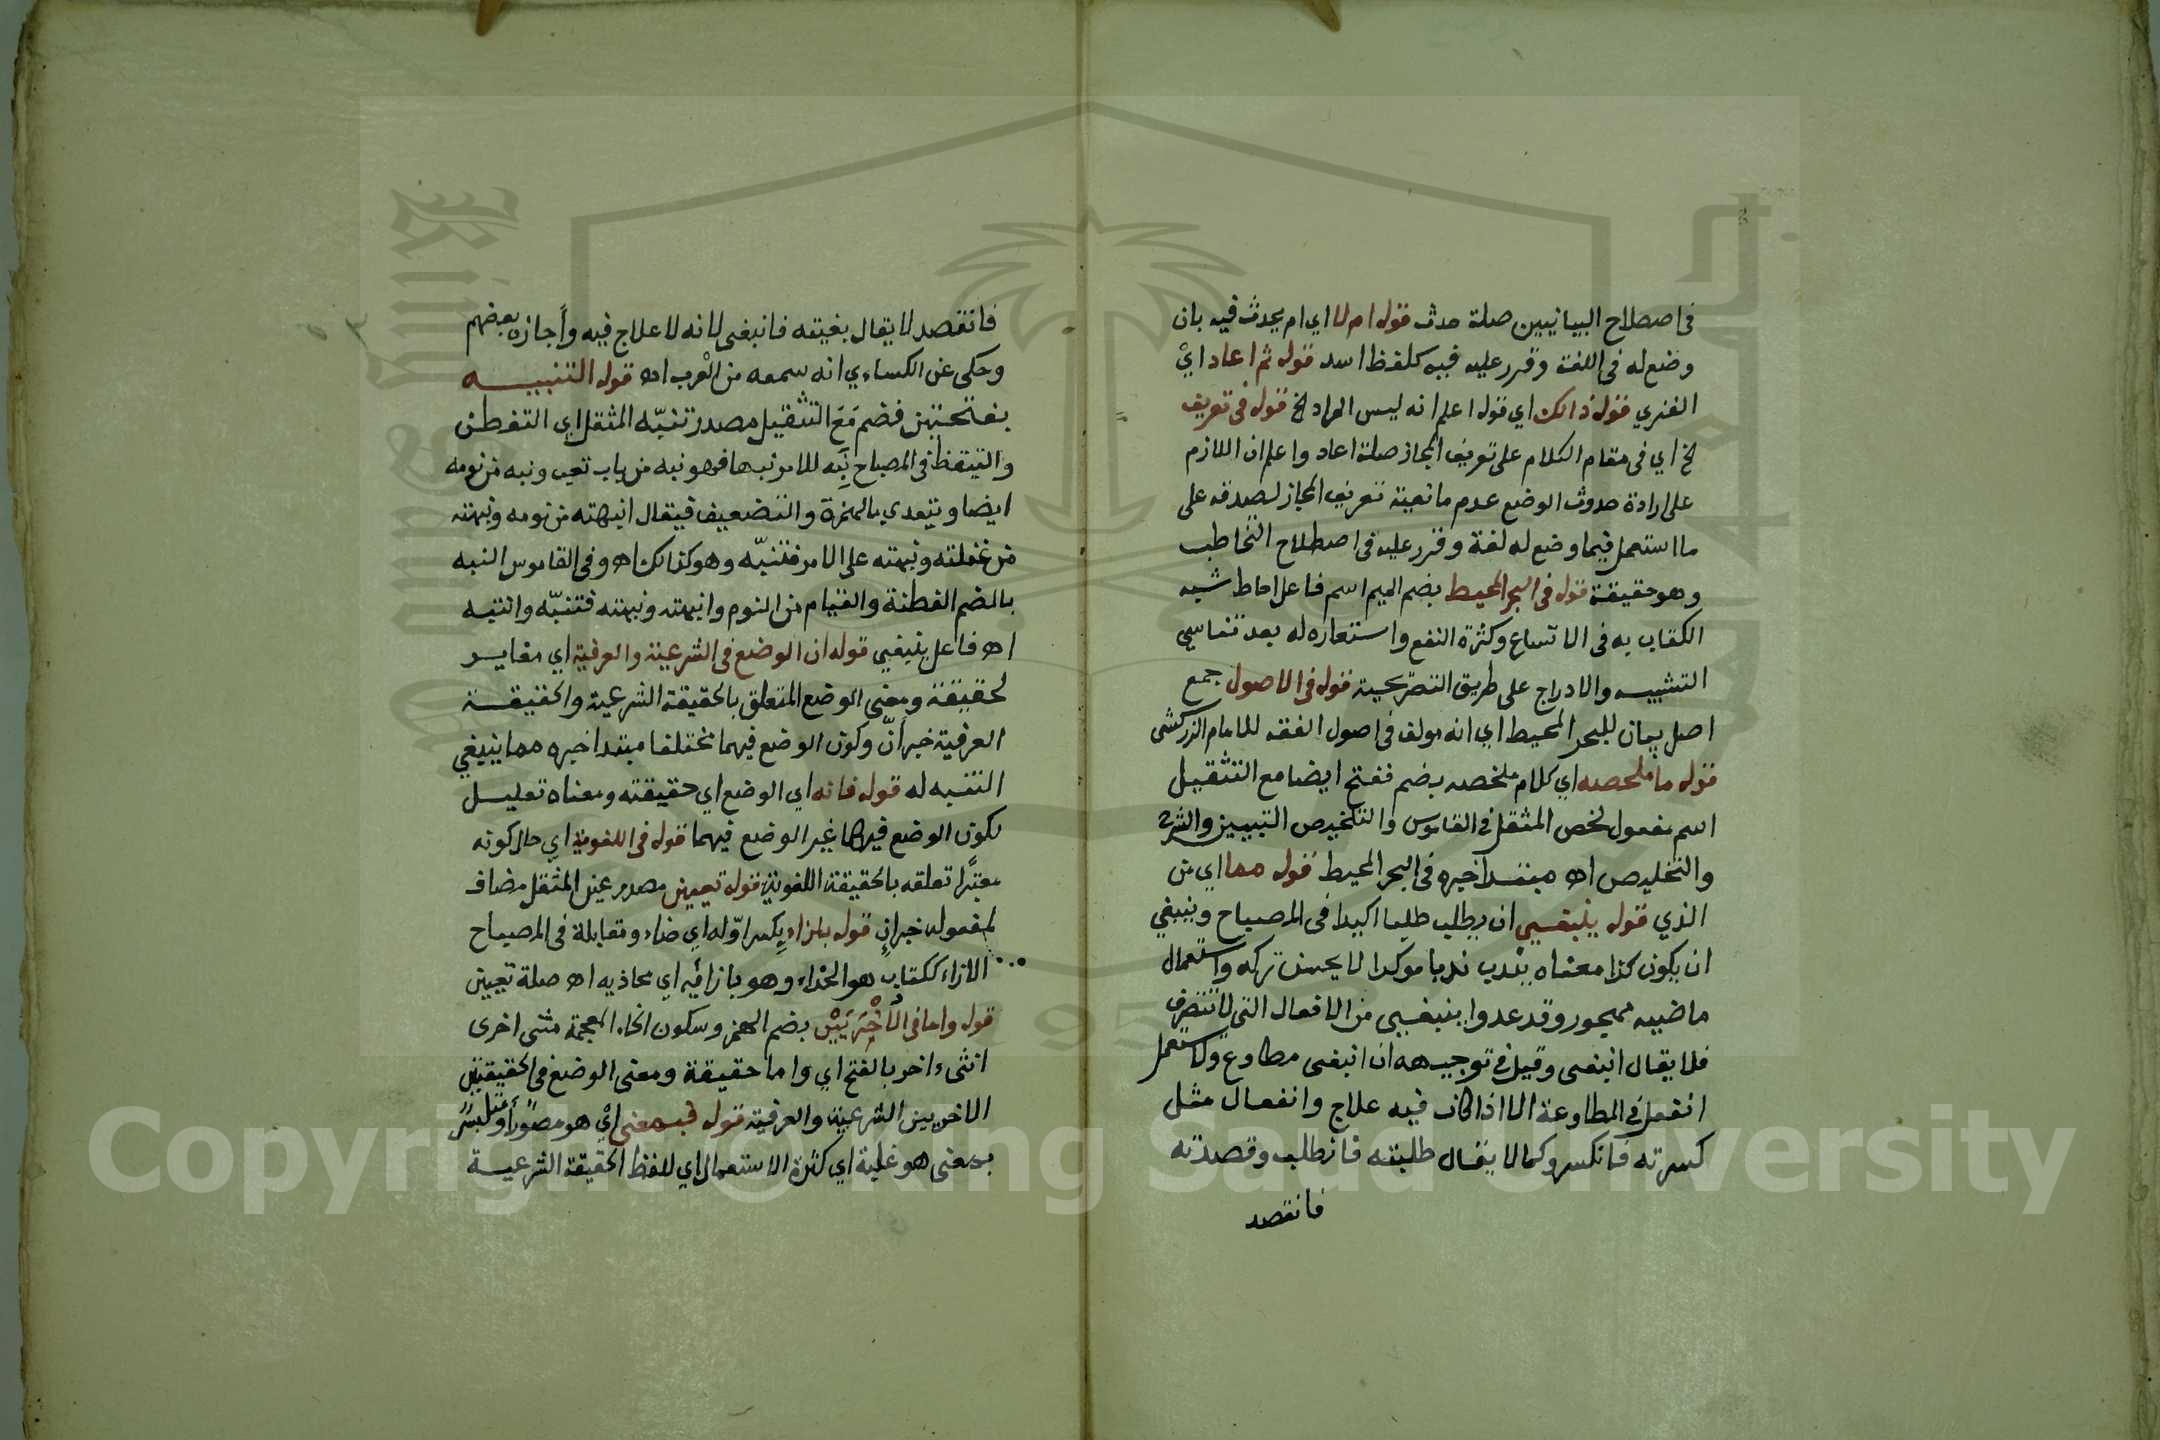 في اصطلاح البيانيين صلة حدث قوله ام لا اي ام يحدث فيه بان
وضع له في اللغة وقرر عليه فيه كلفظ اسد قوله ثم اعاد ايْ
الفنري قوله ذالك اي قوله اعلم انه ليس المراد الخ قوله في تعريف
الخ اي في مقام الكلام على تعريف المجاز صلة اعاد واعلم ان اللازم
على ارادة حدوث الوضع عدم مانعية تعريف المجاز لصدقه على
ما استعمل فيما وضع له لغة وقرر عليه في اصطلاح التخاطب
وهو حقيقة قوله في البحر المحيط بضم الميم اسم فاعل احاط شبه
الكتاب به في الاتساع وكثرة النفع واستعاره له بعد تناسي
التشبيه والادراج على طريق التصريحية قوله في الاصول جمع
اصل بيان للبحر المحيط اي انه مولف في اصول الفقه للامام الزركشى
قوله ما ملخصه اي كلام ملخصه بضم ففتح ايضا مع التثقيل
اسم مفعول لخص المثقل في القاموس والتلخيص التبيين والشرح
والتخليص اه مبتدا خبره في البحر المحيط قوله مما اي من
الذي قوله ينبغي ان يطلب طلبا اكيدا في المصباح وينبغي
ان يكون كذا معناه يندب ندبا موكدا لا يحسن تركه واستعمال
ماضيه مهجور وقد عدوا ينبغي من الافعال التي لا تتصرف
فلا يقال انبغى وقيل في توجيهه ان انبغى مطاوع ولا يستعمل
انفعل في المطاوعة الا اذا كان فيه علاج وانفعال مثل
كسرته فانكسر وكما لا يقال طلبته فانطلب وقصدته
فانقصد
فانقصد لا يقال بغيته فانبغى لانه لا علاج فيه وأجازه بعضهم
وحكى عن الكساءي انه سمعه من العرب اه قوله التنبه
بفتحتين فضم مَعَ التثقيل مصدر تنبّه المثقل اي التفطن
والتيقظ في المصباح نَبِه للامر نبها فهو نبه من باب تعب ونبه من نومه
ايضا ويتعدي بالهمزة والتضعيف فيقال انبهته من نومه ونبهته
من غفلته ونبهته على الامر فتنبّه وهو كذالك اه وفي القاموس النبه
بالضم الفطنة والقيام من النوم وانبهته ونبهته فتنبّه وانتبه
اه فاعل ينبغي قوله ان الوضع في الشرعية والعرفية اي مغاير
لحقيقة ومعنى الوضع المتعلق بالحقيقة الشرعية والحقيقة
العرفية خبر أنّ وكون الوضع فيهما مختلفا مبتدا خبره مما ينبغي
التنبه له قوله فانه اي الوضع اي حقيقته ومعناه تعليل
لكون الوضع فيهما غير الوضع فيهما قوله في اللغوية اي حال كونه
معتبرًا تعلقه بالحقيقة اللغوية قوله تعيين مصدر عين المثقل مضاف
لمفعوله خبر ان قوله بازاء بكسر اوّله اي حذاء ومقابلة في المصباح
الازاء ككتاب هو الحذاء وهو بازائه اي محاذيه اه صلة تعيين
قوله واما في الأُخْرَيَيْن بضم الهمز وسكون الخاء المعجمة مثنى اخرى
انثىء اخر بالفتح اي واما حقيقة ومعنى الوضع في الحقيقتين
الاخريين الشرعية والعرفية قوله فبمعنى ايْ هو
بمعنى هو غلبة اي كثرة الاستعمال اي للفظ الحقيقة الشرعية
Copyright © King Saud University